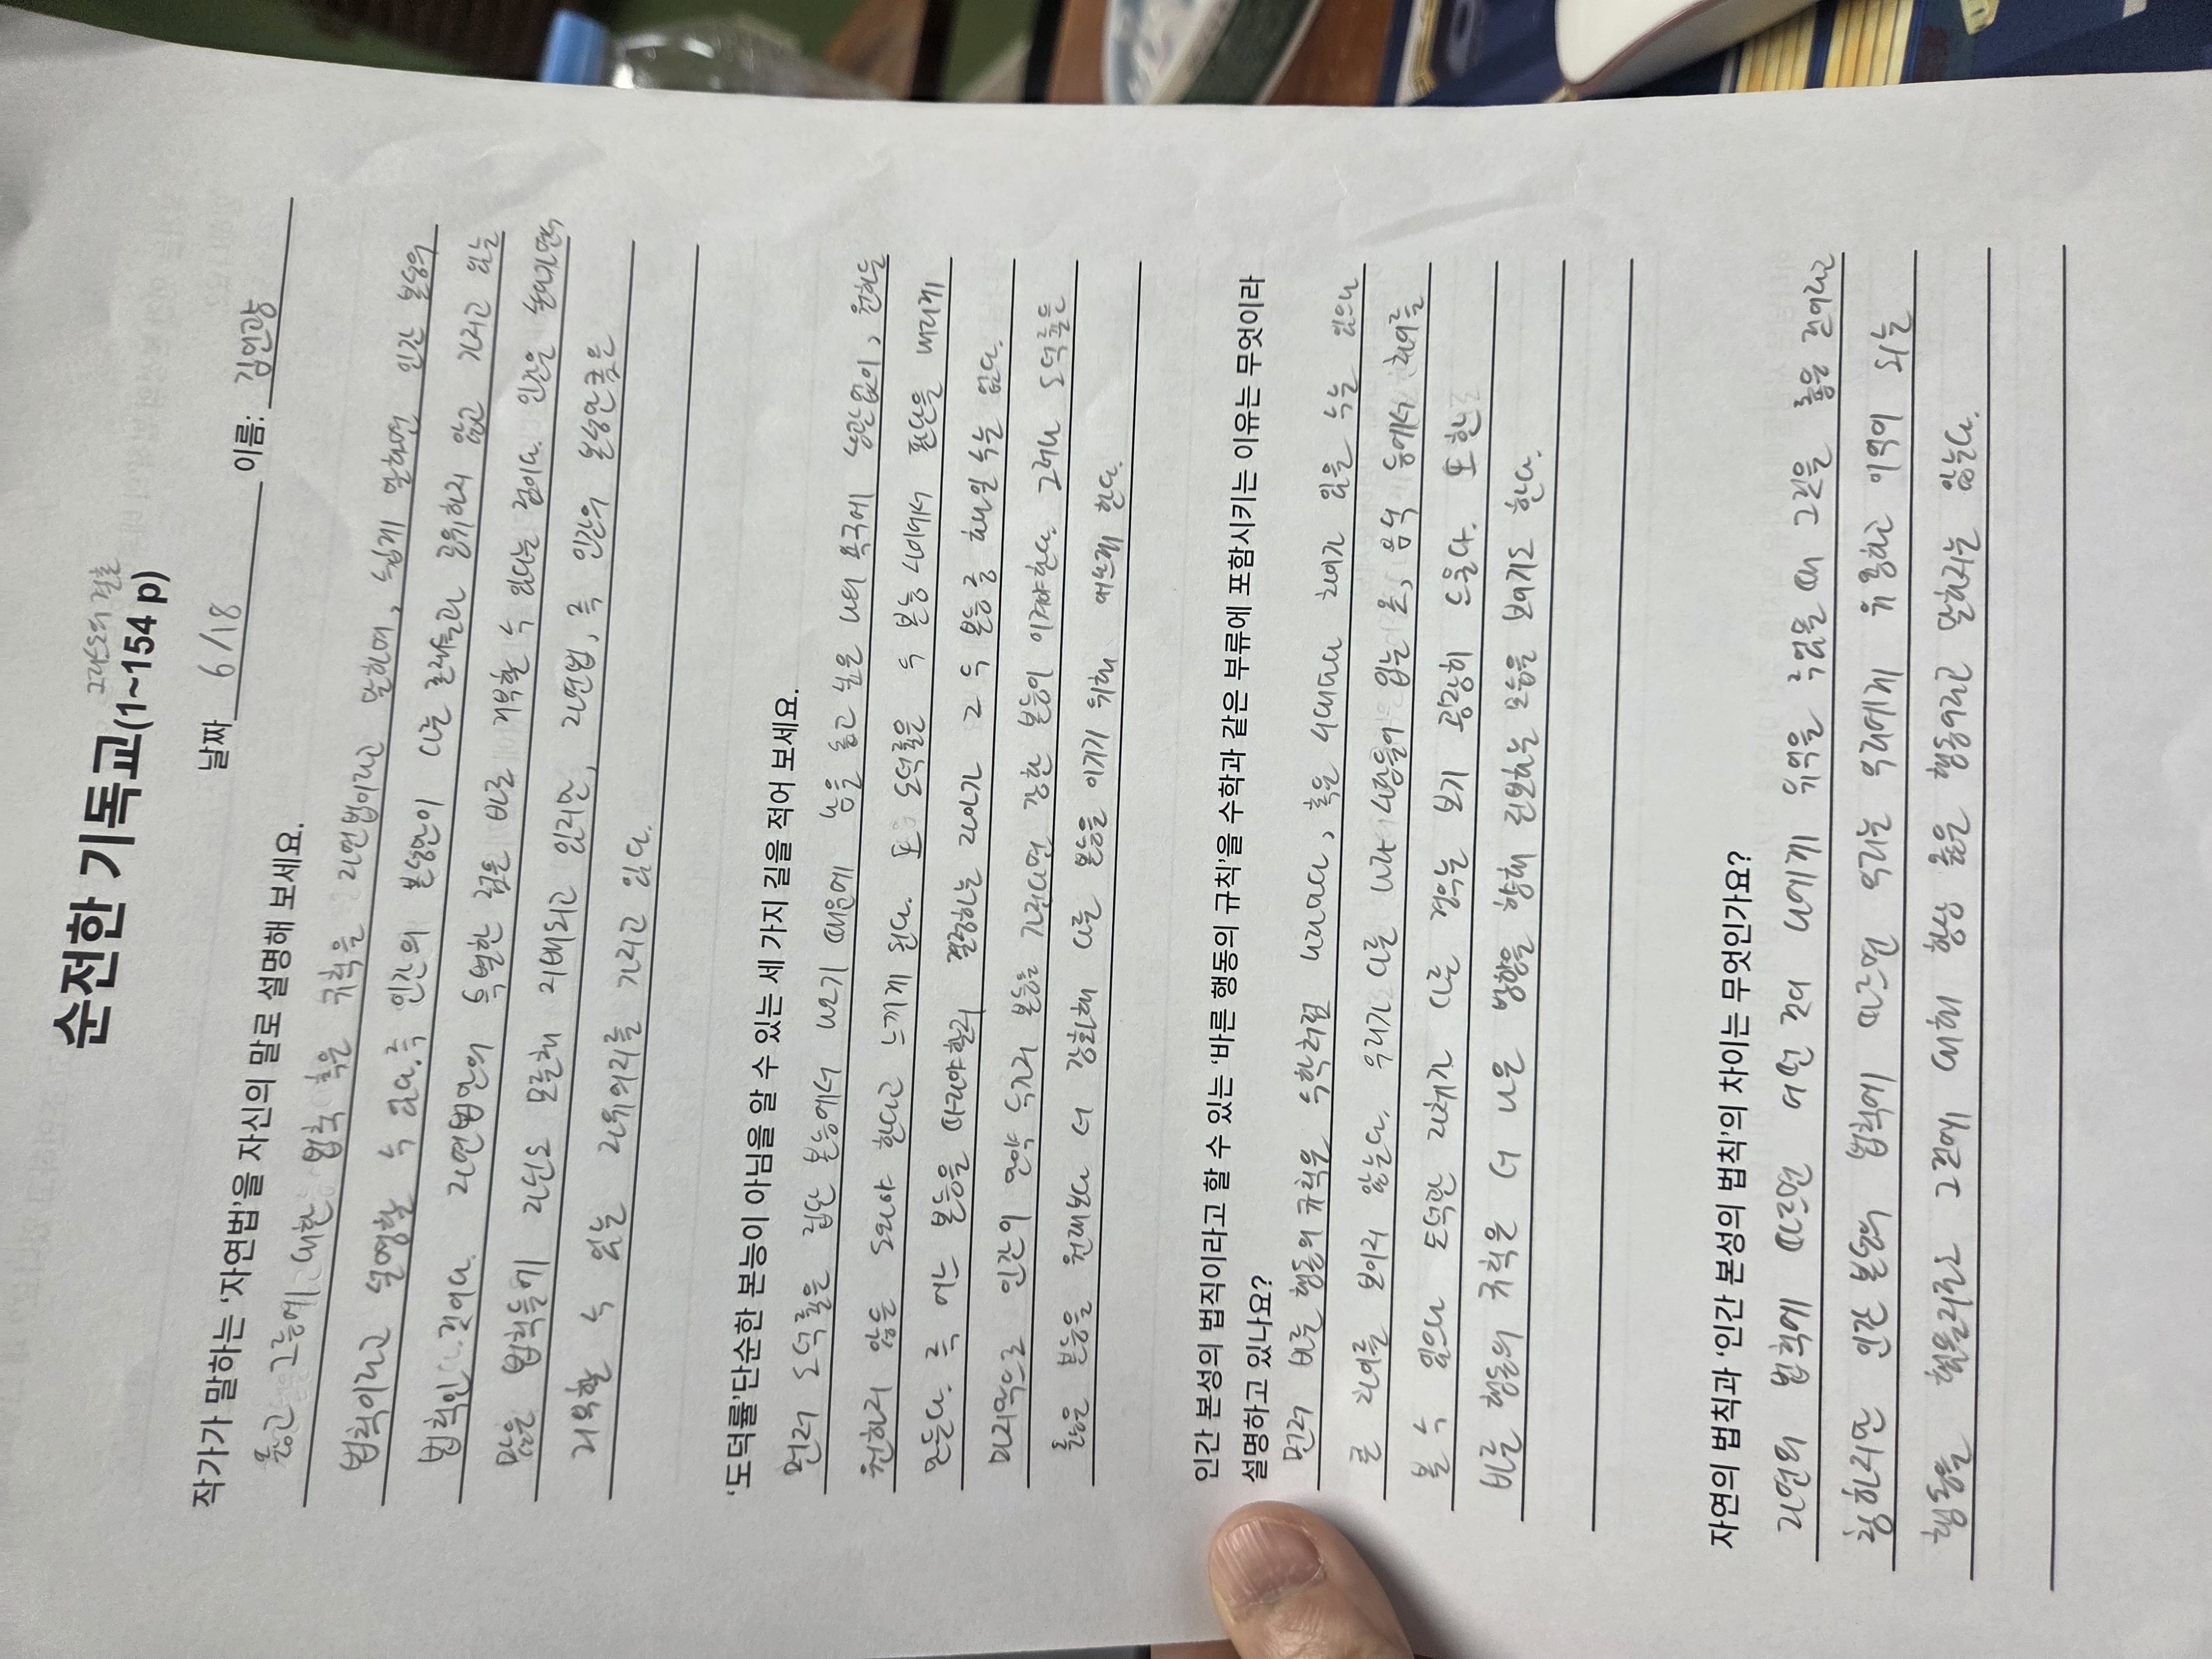 그리스도의 결혼
순전한 기독교(1~154 p)
날짜 6/18 이름: 김인광
작가가 말하는 ‘자연법’을 자신의 말로 설명해 보세요.
옳고 그름에 대한 법칙 혹은 규칙을 자연법이라고 말하며, 쉽게 말하면 인간 본성의
법칙이라고 설명할 수 있다. 즉 인간의 본성만이 다른 것들과 공유하지 않고 가지고 있는
법칙인 것이다. 자연법만의 특별한 점은 바로 거부할 수 있다는 점이다. 인간은 동아가면
많은 법칙들에 자신도 모르게 지배되고 있지만, 자연법, 즉 인간의 본성만큼은
거역할 수 있는 자유의지를 가지고 있다.
‘도덕률’단순한 본능이 아님을 알 수 있는 세 가지 길을 적어 보세요.
먼저 도덕률은 집단 본능에서 나오기 때문에 남을 돕고 싶은 나의 욕구에 상관없이, 원하든
원하지 않든 도와야 한다고 느끼게 된다. 또 도덕률은 두 본능 사이에서 판단을 내리게
만든다. 즉 어느 본능을 따라야할지 결정하는 자아가 그 두 본능 중 하나일 수는 없다.
마지막으로 인간이 만약 두가지 본능을 가진다면 강한 본능이 이겨야한다. 그러나 도덕률은
옳은 본능을 원래보다 더 강화해 다른 본능을 이기기 위해 애쓰게 한다.
인간 본성의 법칙이라고 할 수 있는 ‘바른 행동의 규칙’을 수학과 같은 부류에 포함시키는 이유는 무엇이라
설명하고 있나요?
먼저 바른 행동의 규칙은 수학처럼 나라마다, 혹은 시대마다 차이가 있을 수는 있으나
큰 차이를 보이지 않는다. 우리가 다른 나라 사람들이 입는 옷, 음식 등에서 차이를
볼 수 있으나 도덕관 자체가 다른 경우는 보기 굉장히 드물다. 또한
바른 행동의 규칙은 더 나은 방향을 향해 진보하는 모습을 보이기도 한다.
자연의 법칙과 ‘인간 본성의 법칙’의 차이는 무엇인가요?
자연의 법칙에 따르면 어떤 것이 나에게 유익을 주었을 때 그것을 옳은 것이라고
칭하지만 인간 본성의 법칙에 따르면 우리는 우리에게 유일하고 이익이 되는
행동을 할지라도 그것에 대해 항상 옳은 행동이라고 말하지는 않는다.